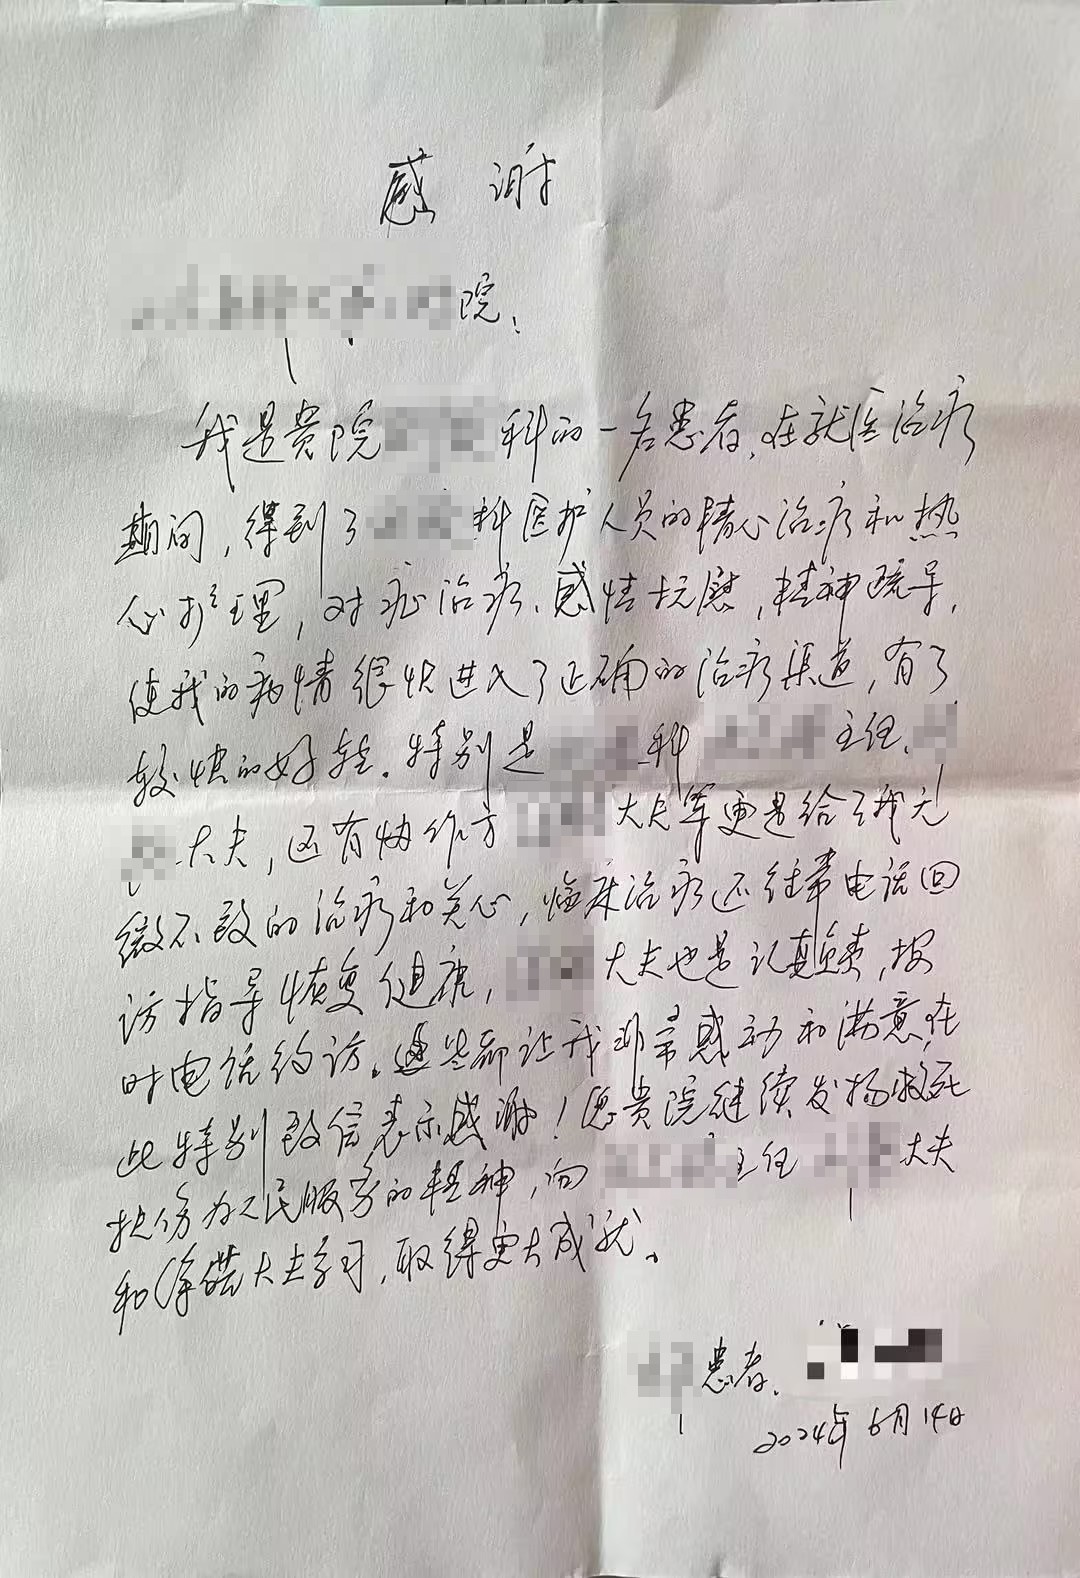 感谢
院：
我是贵院科的一名患者，在就医治疗
期间，得到了科医护人员的精心治疗和热
心护理，对症治疗、感情抚慰，精神疏导，
使我的病情很快进入了正确的治疗渠道，有了
较快的好转。特别是科主任、
大夫，还有协作方大夫等更是给了我无
微不致的治疗和关心，临床治疗还往常电话回
访指导恢复健康，大夫也是认真负责，按
时电话约访。这些都让我非常感动和满意，在
此特别致信表示感谢！愿贵院继续发扬救死
扶伤为人民服务的精神，向主任大夫
和大夫学习，取得更大成就。
患者．
2024年6月14日